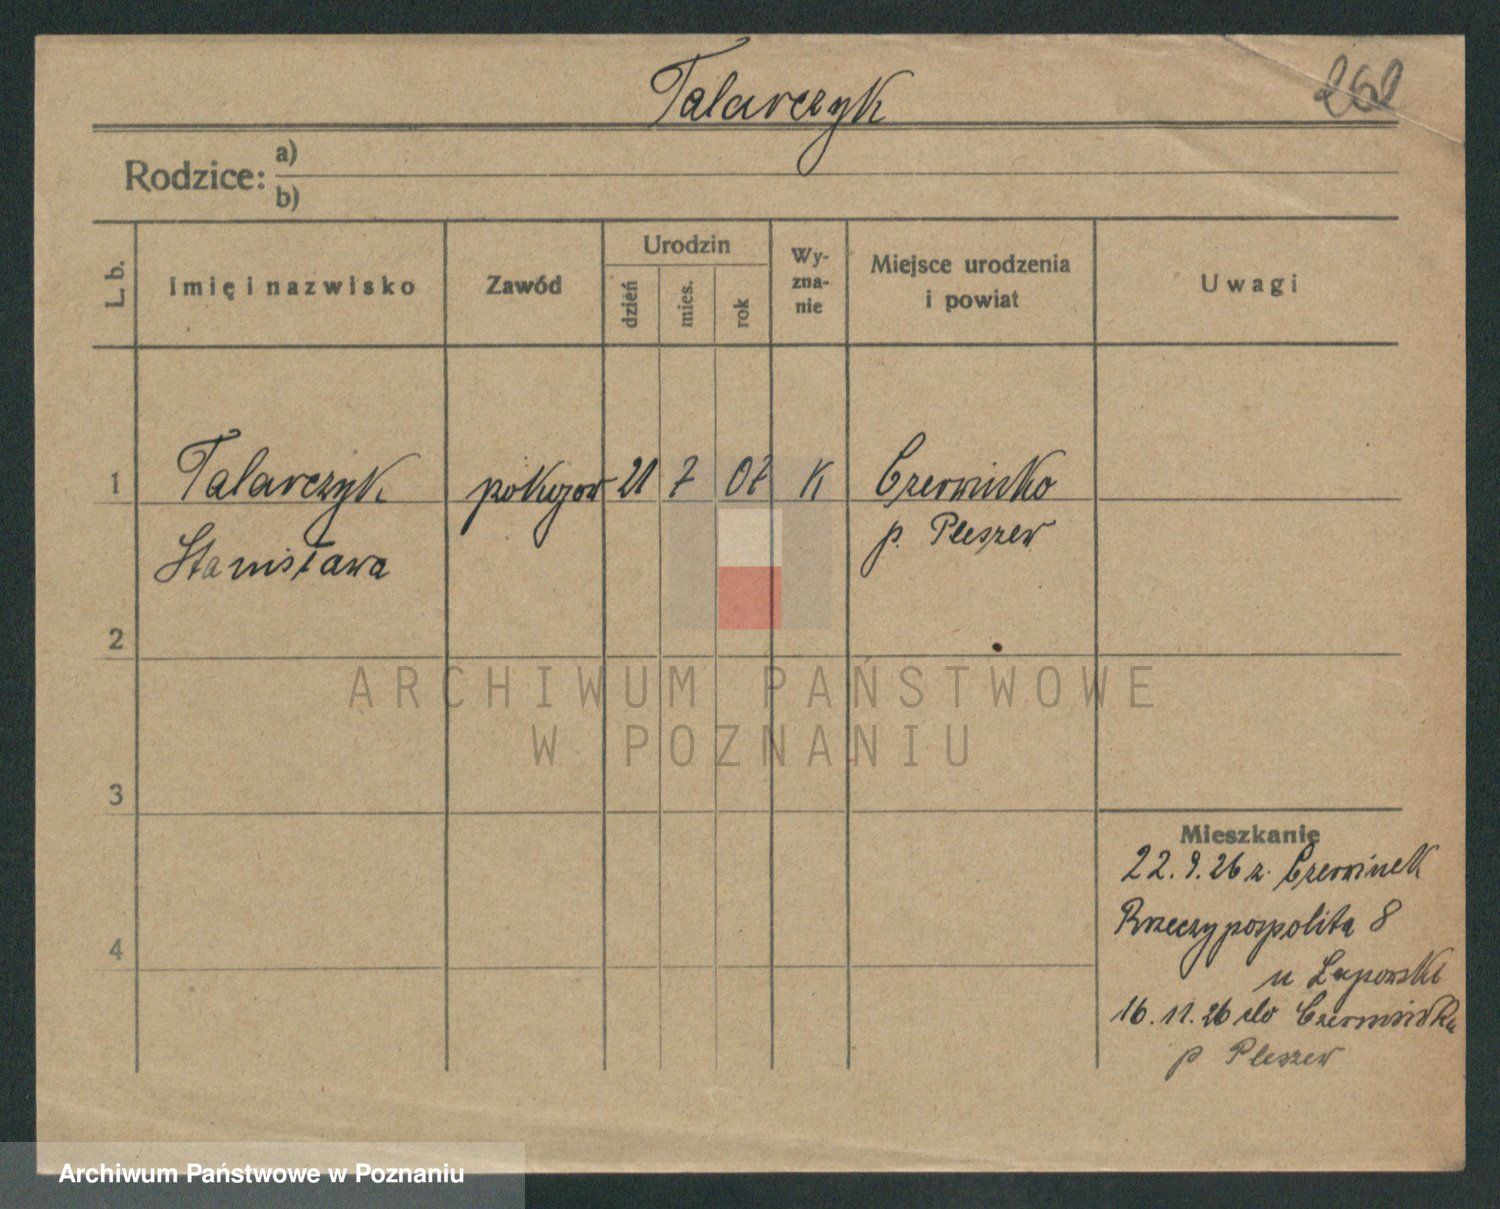 Talarczyk
262
Rodzice: a)
b)
L. b.
imię i nazwisko
Zawód
Urodzin
dzień
mies.
rok
Wy-
zna-
nie
Miejsce urodzenia
i powiat
Uwagi
1
Talarczyk
Stanisława
pokojow
21
7
07
K
Czerminko
p. Pleszew
2
3
4
ARCHIWUM PAŃSTWOWE
W POZNANIU
Mieszkanie
22.9.26 z. Czerminek
Rzeczypospolita 8
u Łapowski
16.11.26 do Czerminka
p Pleszew
Archiwum Państwowe w Poznaniu